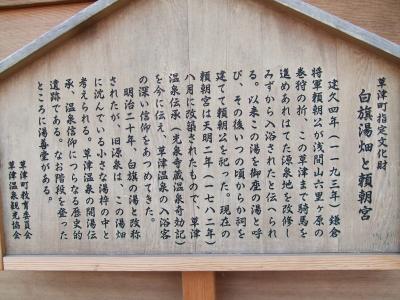 草津町指定文化財
白旗湯畑と頼朝宮
建久四年（一一九三年）鎌倉
将軍頼朝公が浅間山六里ヶ原の
巻狩の折、この草津まで騎馬を
進めあれはてた源泉地を改修し
みずから入浴されたと伝へられ
る。以来この湯を御座の湯と呼
び、その後いつの頃からか祠を
建てて頼朝公を祀った。現在の
頼朝宮は天明二年（一七八二）
八月に改築されたもので、草津
温泉伝承（光泉寺蔵温泉奇効記）
を今に伝え、草津温泉の入浴客
の深い信仰をあつめてきた。
明治二十年、白旗の湯と改称
されたが、旧源泉は、この湯畑
に沈んでいる小さな湯枠の中と
考えられる。草津温泉の開湯伝
承、温泉信仰につらなる歴史的
遺跡である。なお階段を登った
ところに湯善堂がある。
草津町教育委員会
草津温泉観光協会